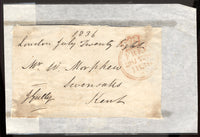 1836
London July Twenty Eight
Mr W. Morphew
Sevenoaks
Kent